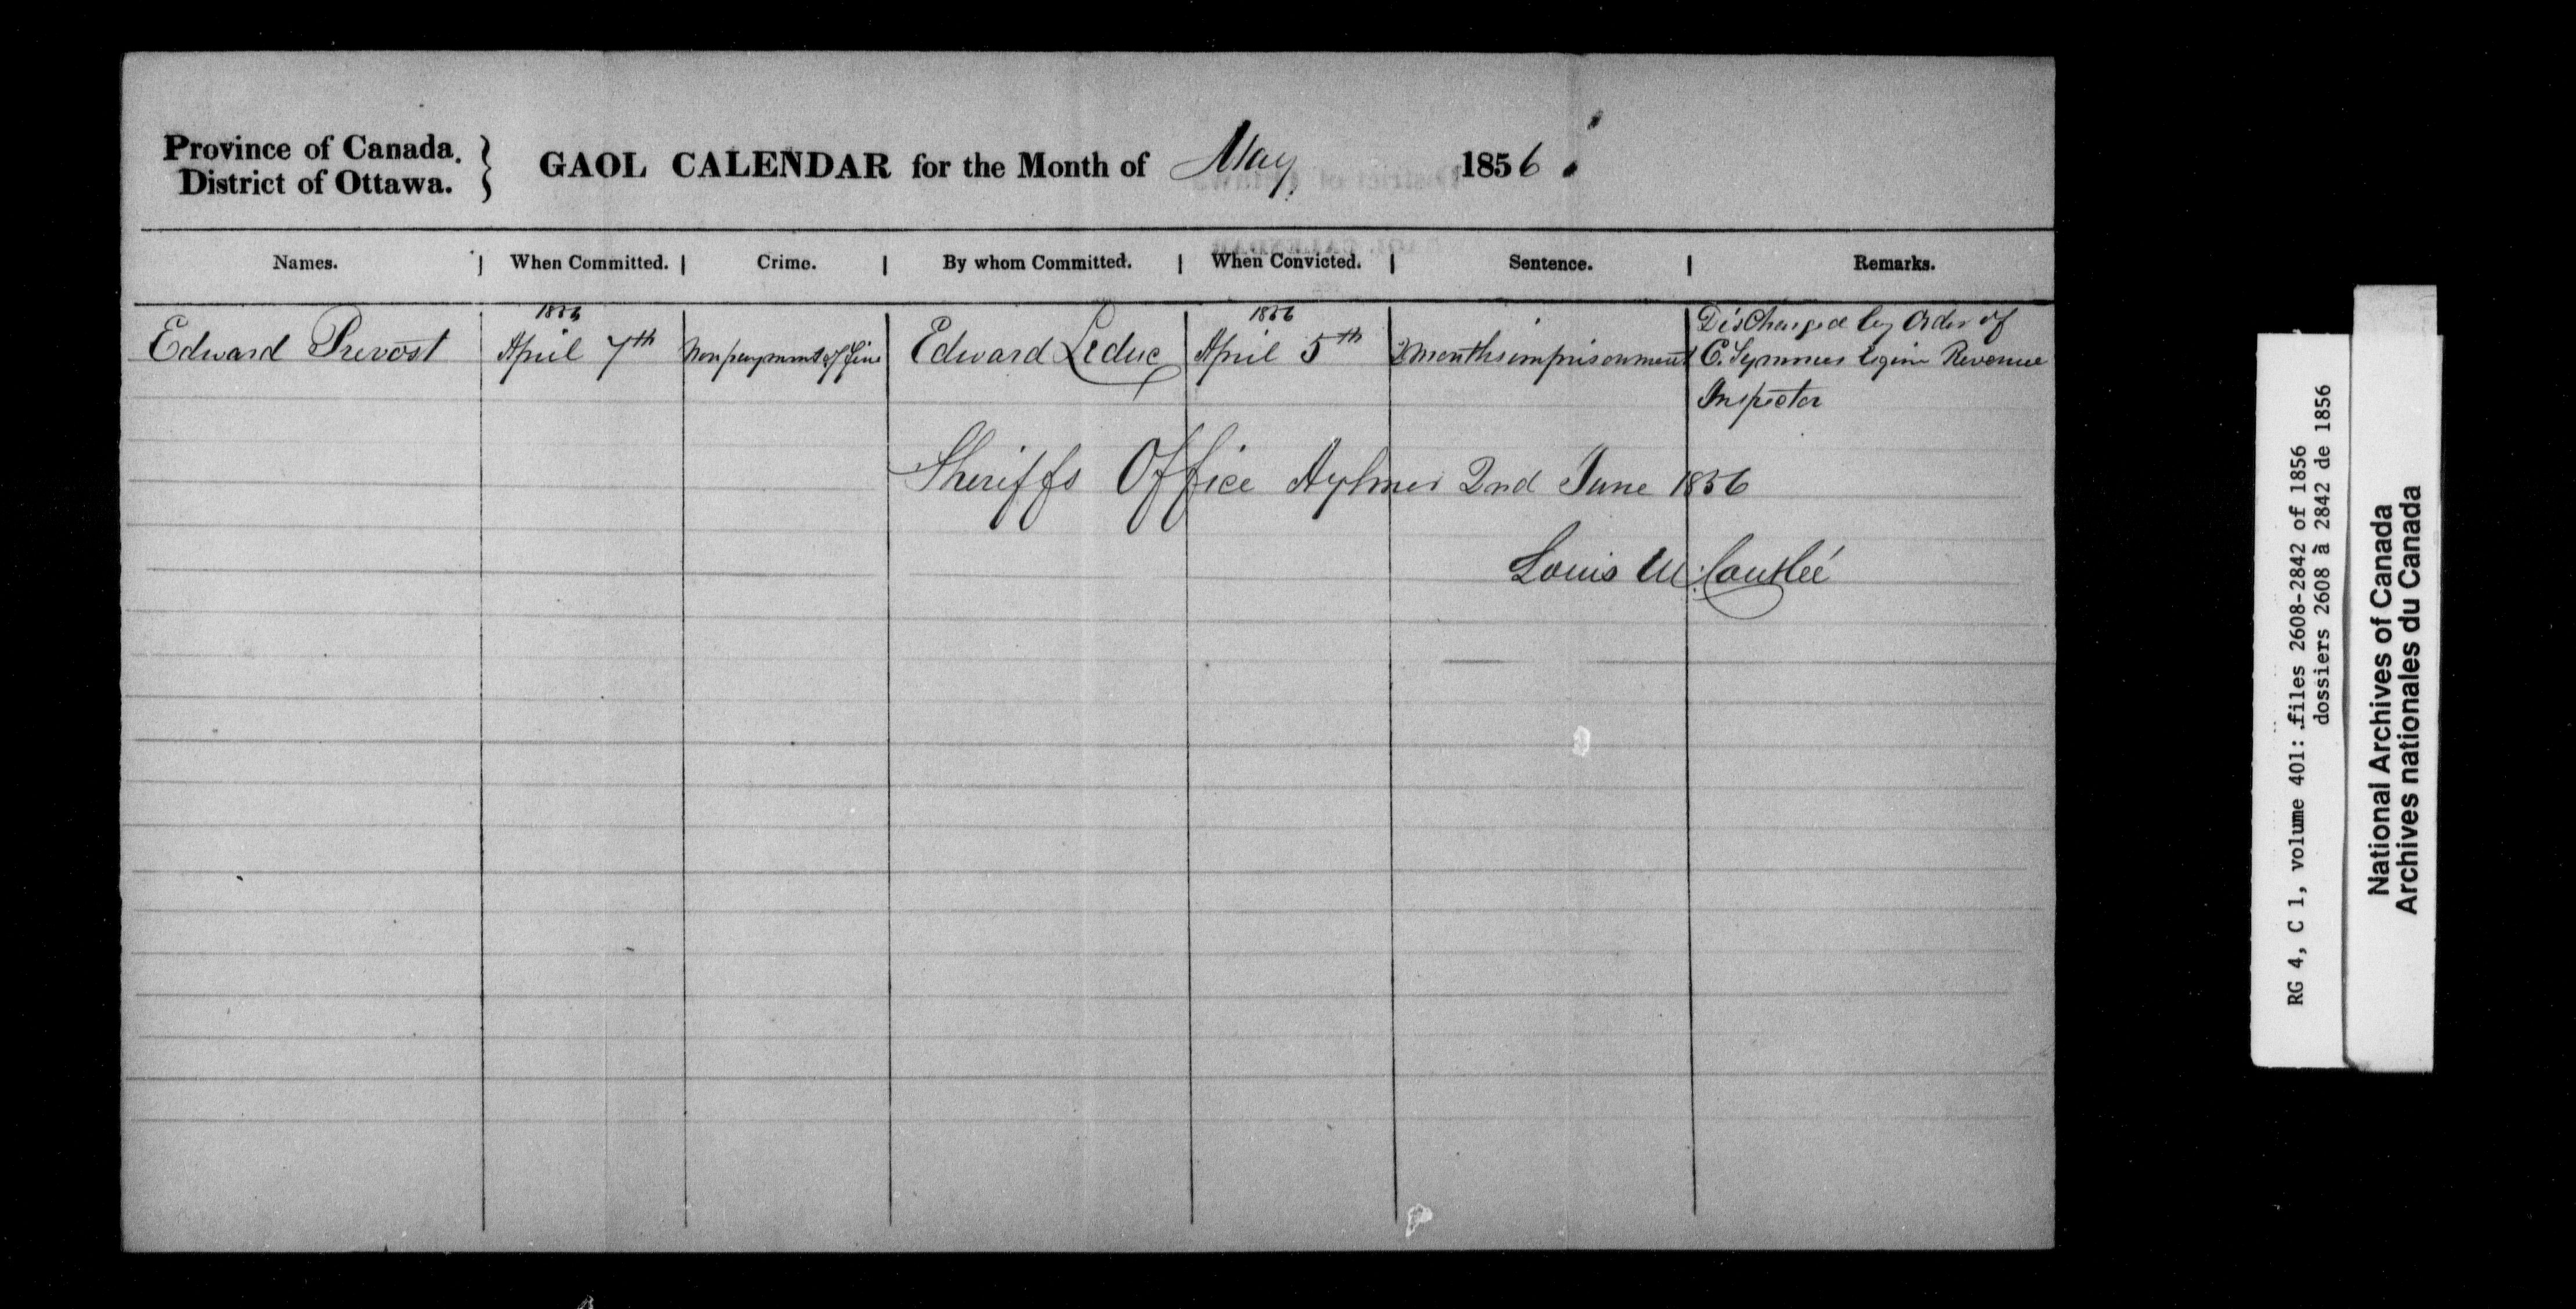 Province of Canada.
District of Ottawa.
GAOL CALENDAR for the Month of May 1856
Names. When Committed. Crime. By whom Committed. When Convicted. Sentence. Remarks.
1856 1856 Discharged by Order of
Edward Prevost April 7th Non payment of fine Edward Leduc April 5th 2 months imprisonment C. Symmes Revenue
Inspector
Sheriffs Office Aylmer 2nd June 1856
Louis M. Coutlée
RG 4, C 1, volume 401: files 2608-2842 of 1856
dossiers 2608 à 2842 de 1856
National Archives of Canada
Archives nationales du Canada